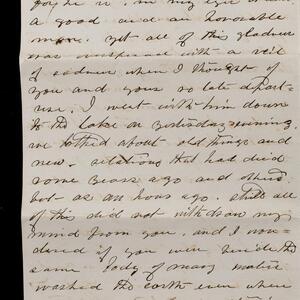 a good and an honorable
man. yet all of this gladness
was overspread with a veil
of sadness when I thought of
you and your so late depart-
ure. I went with him down
to the lake on Yesterday evening
we talked about old things and
new. relations that had died
some years ago and others
but as an hour ago. still all
of this did not withdraw my
mind from you, and I won-
dered if you were beside the
same body of many waters
washed the earth even when